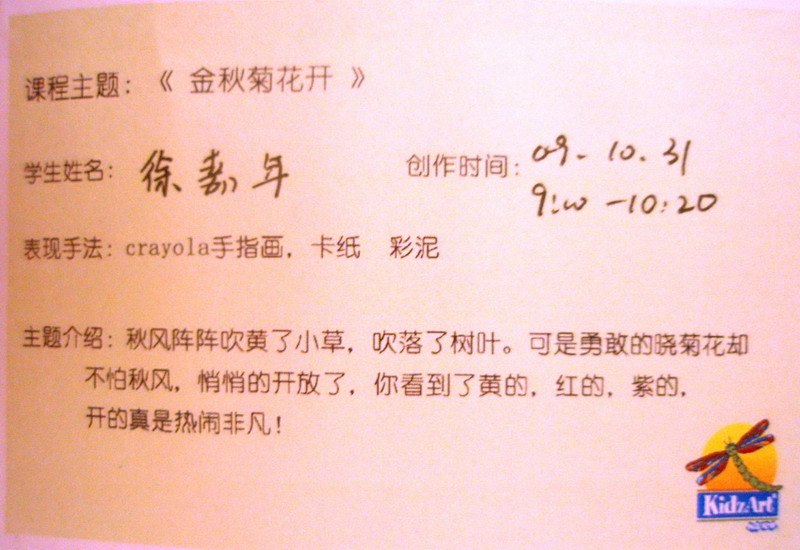 课程主题：《 金秋菊花开 》
学生姓名：徐嘉年 创作时间：09.10.31
9:00-10:20
表现手法：crayola手指画，卡纸 彩泥
主题介绍：秋风阵阵吹黄了小草，吹落了树叶。可是勇敢的晓菊花却
不怕秋风，悄悄的开放了，你看到了黄的，红的，紫的，
开的真是热闹非凡！
KidzArt